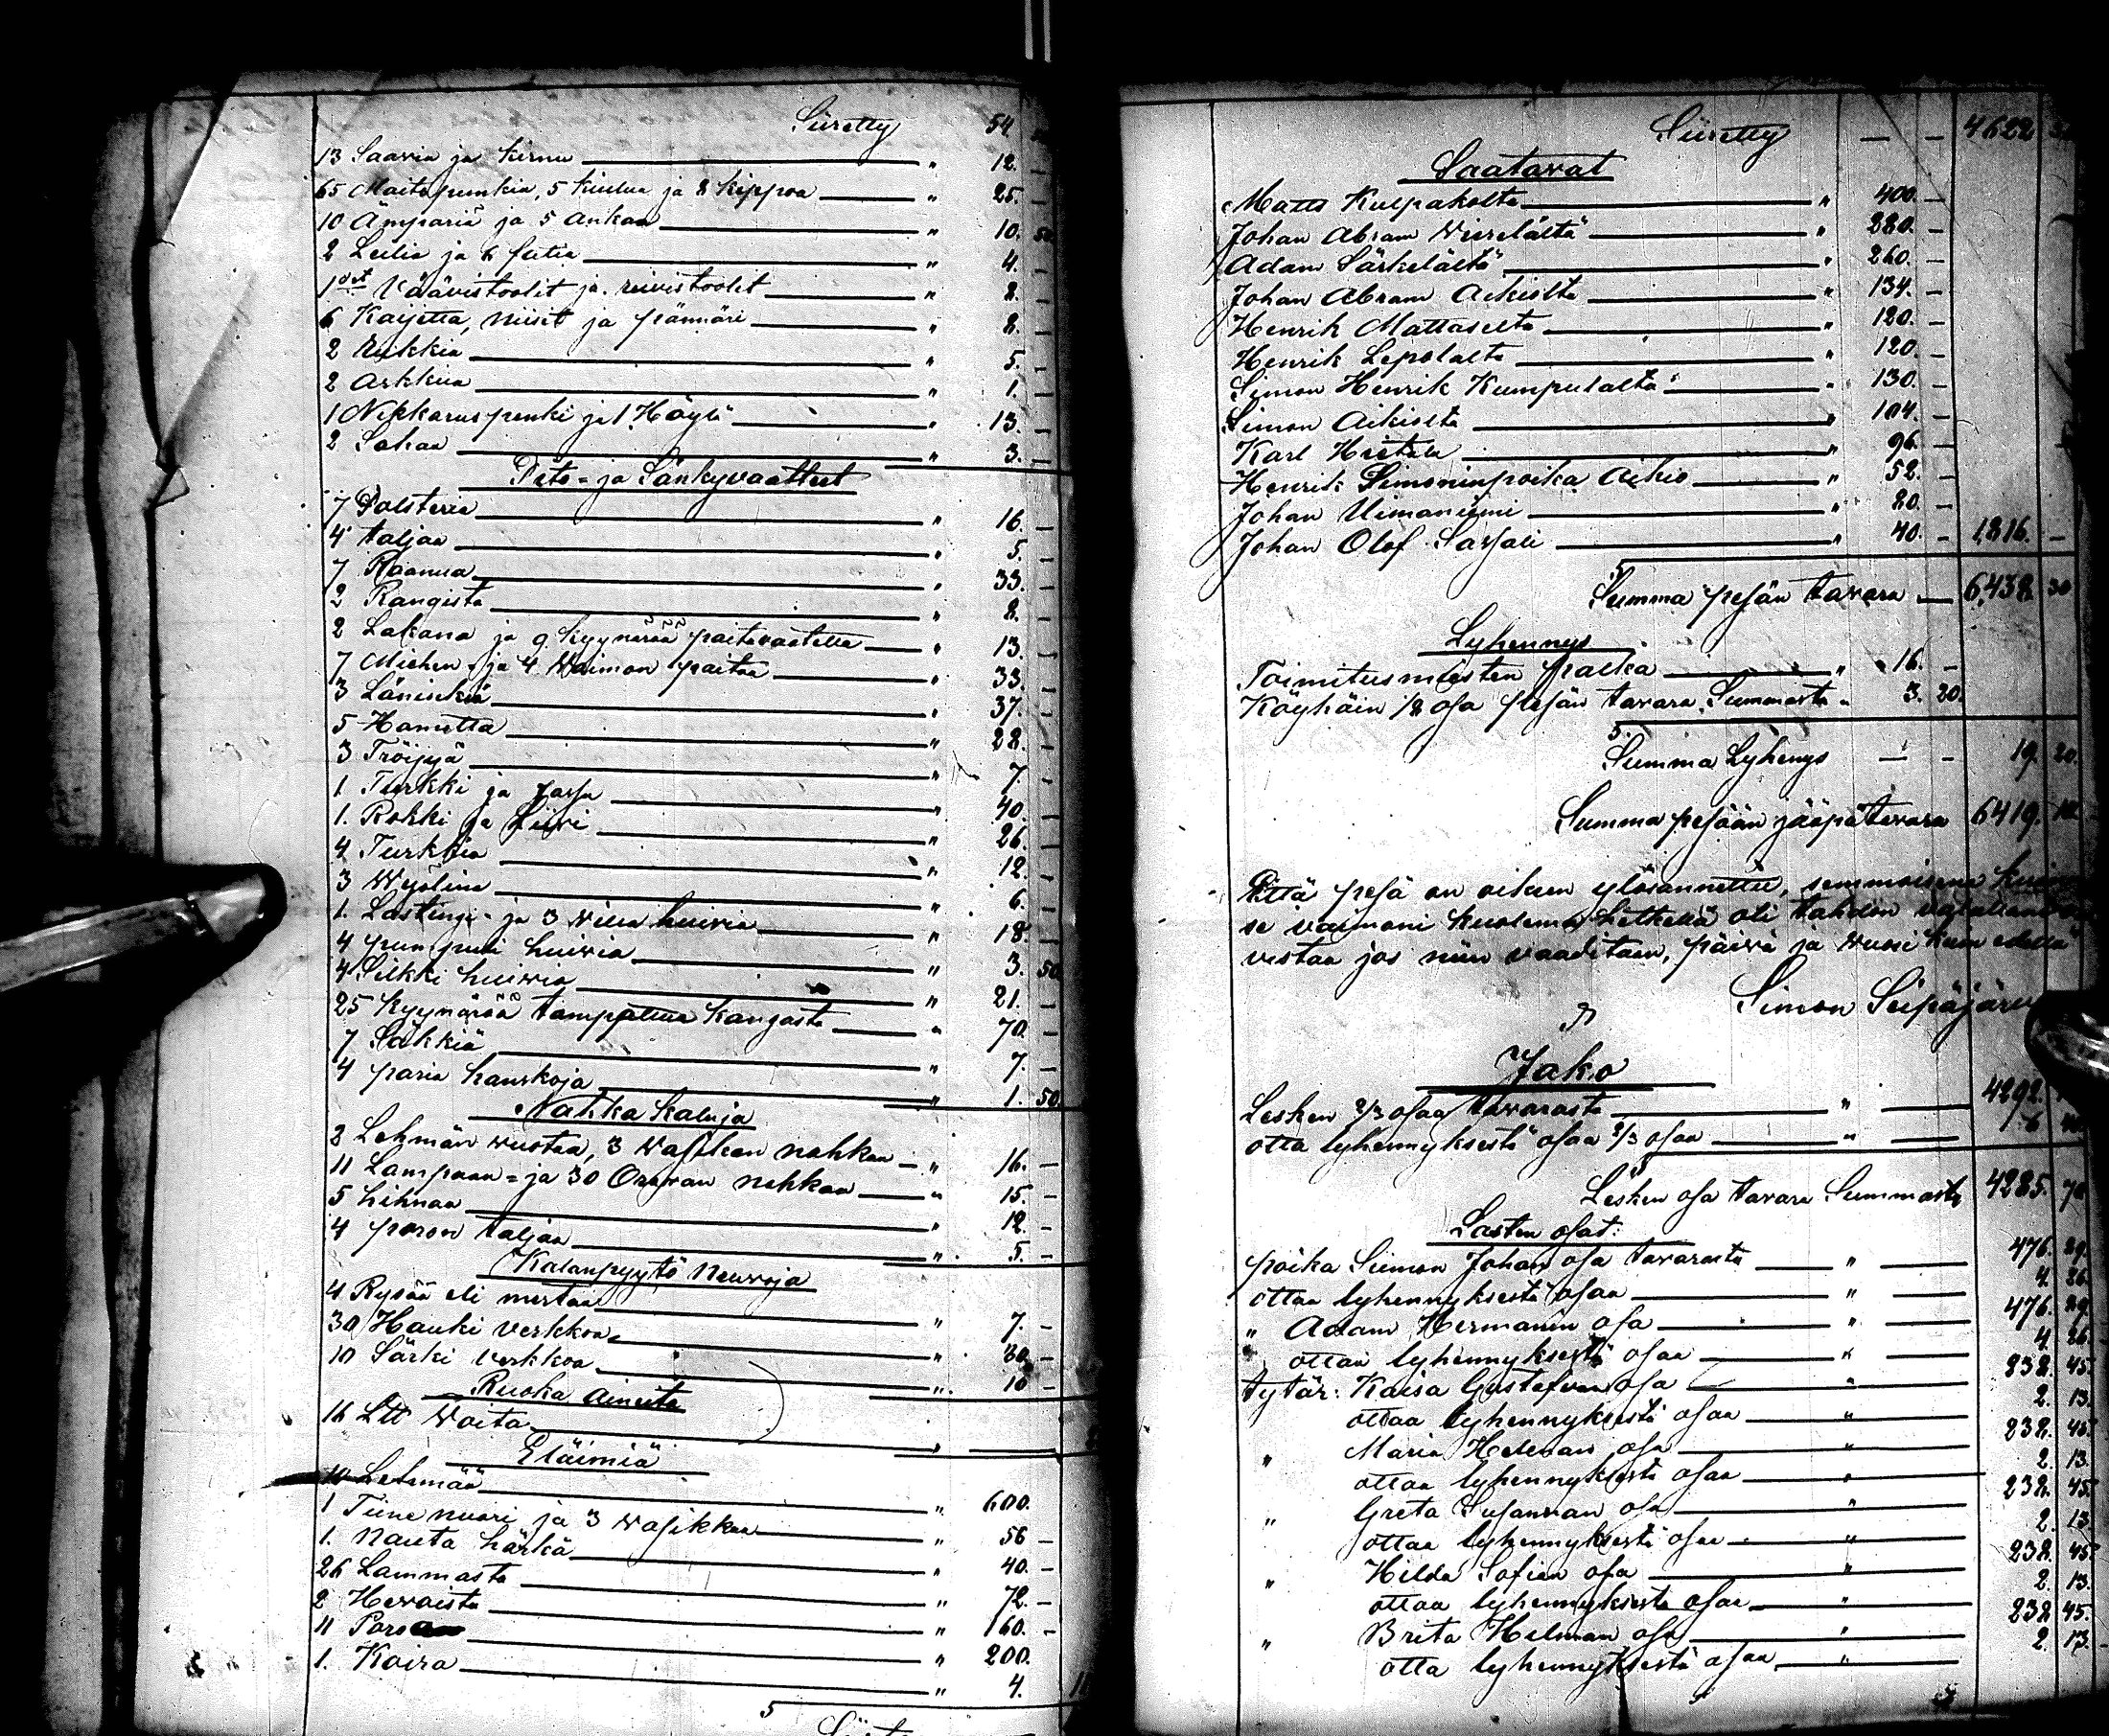 Siiretty 54.
13 Saavia ja kirnu — " 12. —
65 Maitopunkia, 5 kiulua ja 8 kippoa — " 25. —
10 Ämpäriä ja 5 ankaa — " 10. 50
2 Leilia ja 6 — " 4. —
1 det Väävistoolit ja reivistoolit — " 8. —
6 Kaijetta, niisit ja pännäri — " 2. —
2 Rukkia — " 5. —
2 Arkkua — " 1. —
1 Nikkaruspenki ja 1 Höylä — " 13. —
2 Sahaa — " 3. —
Pito- ja Sänkyvaatteet
7 Polsteria — " 16. —
4 taljaa — " 5. —
7 Raanua — " 33. —
2 Rangista — " 8. —
2 Lakana ja 9 kyynärää paitavaatetta — " 13. —
7 Miehen- ja 4 Waimon paitaa — " 33. —
3 Läninkiä — " 37. —
5 Hametta — " 28. —
3 Tröijyä — " 7. —
1 Turkki ja — " 40. —
1. Rokki ja Liivi — " 26. —
4 Turkkia — " 12. —
3 Wyölinä — " 6. —
1. Lastingi- ja 3 willa huivia — " 18. —
4 pumpuli huivia — " 3. 50
4 Silkki huivia — " 21. —
25 Kyynärää tampattua kangasta — " 70. —
7 Säkkiä — " 7. —
4 paria hanskoja — " 1. 50.
Nahka kaluja
2 Lehmän vuotaa, 3 Wasikan nahkaa — " 16. —
11 Lampaan- ja 30 Orawan nahkaa — " 15. —
5 hihnaa — " 12. —
4 poron taljaa — " 5. —
Kalanpyytö Neuvoja
4 Rysää eli mertaa — " 7. —
30 Hauki verkkoa — " 30. —
10 Särki verkkoa — " 10 —
Ruoka Aineita
16 L℔ Woita — "
Eläimiä
10 Lehmää — " 600.
1 Tiine nuori ja 3 Wasikkaa — " 56 —
1. Nauta härkä — " 40. —
26 Lammasta — " 72. —
2 Hevoista — " 160. —
11 Poro — " 200.
1. Koira — " 4.
Siiretty — — 4622
Saatavat
Matts Kulpakolta — " 400. —
Johan Abram Wierelältä — " 280. —
Adam Särkelältä — " 260. —
Johan Abram Aikiolta — " 134. —
Henrik Mattaselta — " 120. —
Henrik Lepolalta — " 120. —
Simon Henrik Kumpulalta — " 130. —
Simon Aikiolta — " 104. —
Karl Hietala — " 96. —
Henrik Simoninpoika Aikio — " 52. —
Johan Uimaniemi — " 80. —
Johan Olof Sarjali — " 40. — 1,816. —
Summa pesän tavara — 6,438. 30
Lyhennys
Toimitusmiesten palkka — " 16. —
Köyhäin 1/8 osa pesän tavara Summasta " 3. 20.
Summa Lyhenys — — 19. 20.
Summa pesään jääpä tavara 6419. 10
Että pesä on oikeen ylösannettu, semmoisena kuin
se vaimoni kuoleman hetkellä oli tahdon valallani
vistaa jos niin vaaditaan, päivä ja vuosi kuin edellä
Simon Seipäjärvi
Jako
Lesken 2/3 osaa tavarasta — " — 4292.
otta lyhennyksestä osaa 2/3 osaa — " —
Lesken osa tavara Summasta 4285. 70
Lasten osat:
poika Siimon Johan osa tavarasta — " — 476. 29.
ottaa lyhennyksestä osaa — " — 4. 26.
" Adam Hermanin osa — " — 476. 29.
ottaa lyhennyksestä osaa — " — 4. 26.
tytär: Kaisa Gustafvan osa — " — 238. 45.
ottaa lyhennyksestä osaa — " — 2. 13.
" Maria Helenan osa — " — 238. 45.
ottaa lyhennyksestä osaa — " — 2. 13.
" Greta Susannan osa — " — 238. 45.
ottaa lyhennyksestä osaa — " — 2. 13.
" Hilda Sofian osa — " — 238. 45.
ottaa lyhennyksestä osaa — " — 2. 13.
" Brita Hilman osa — " — 238 45.
otta lyhennyksestä osaa — " — 2. 13.